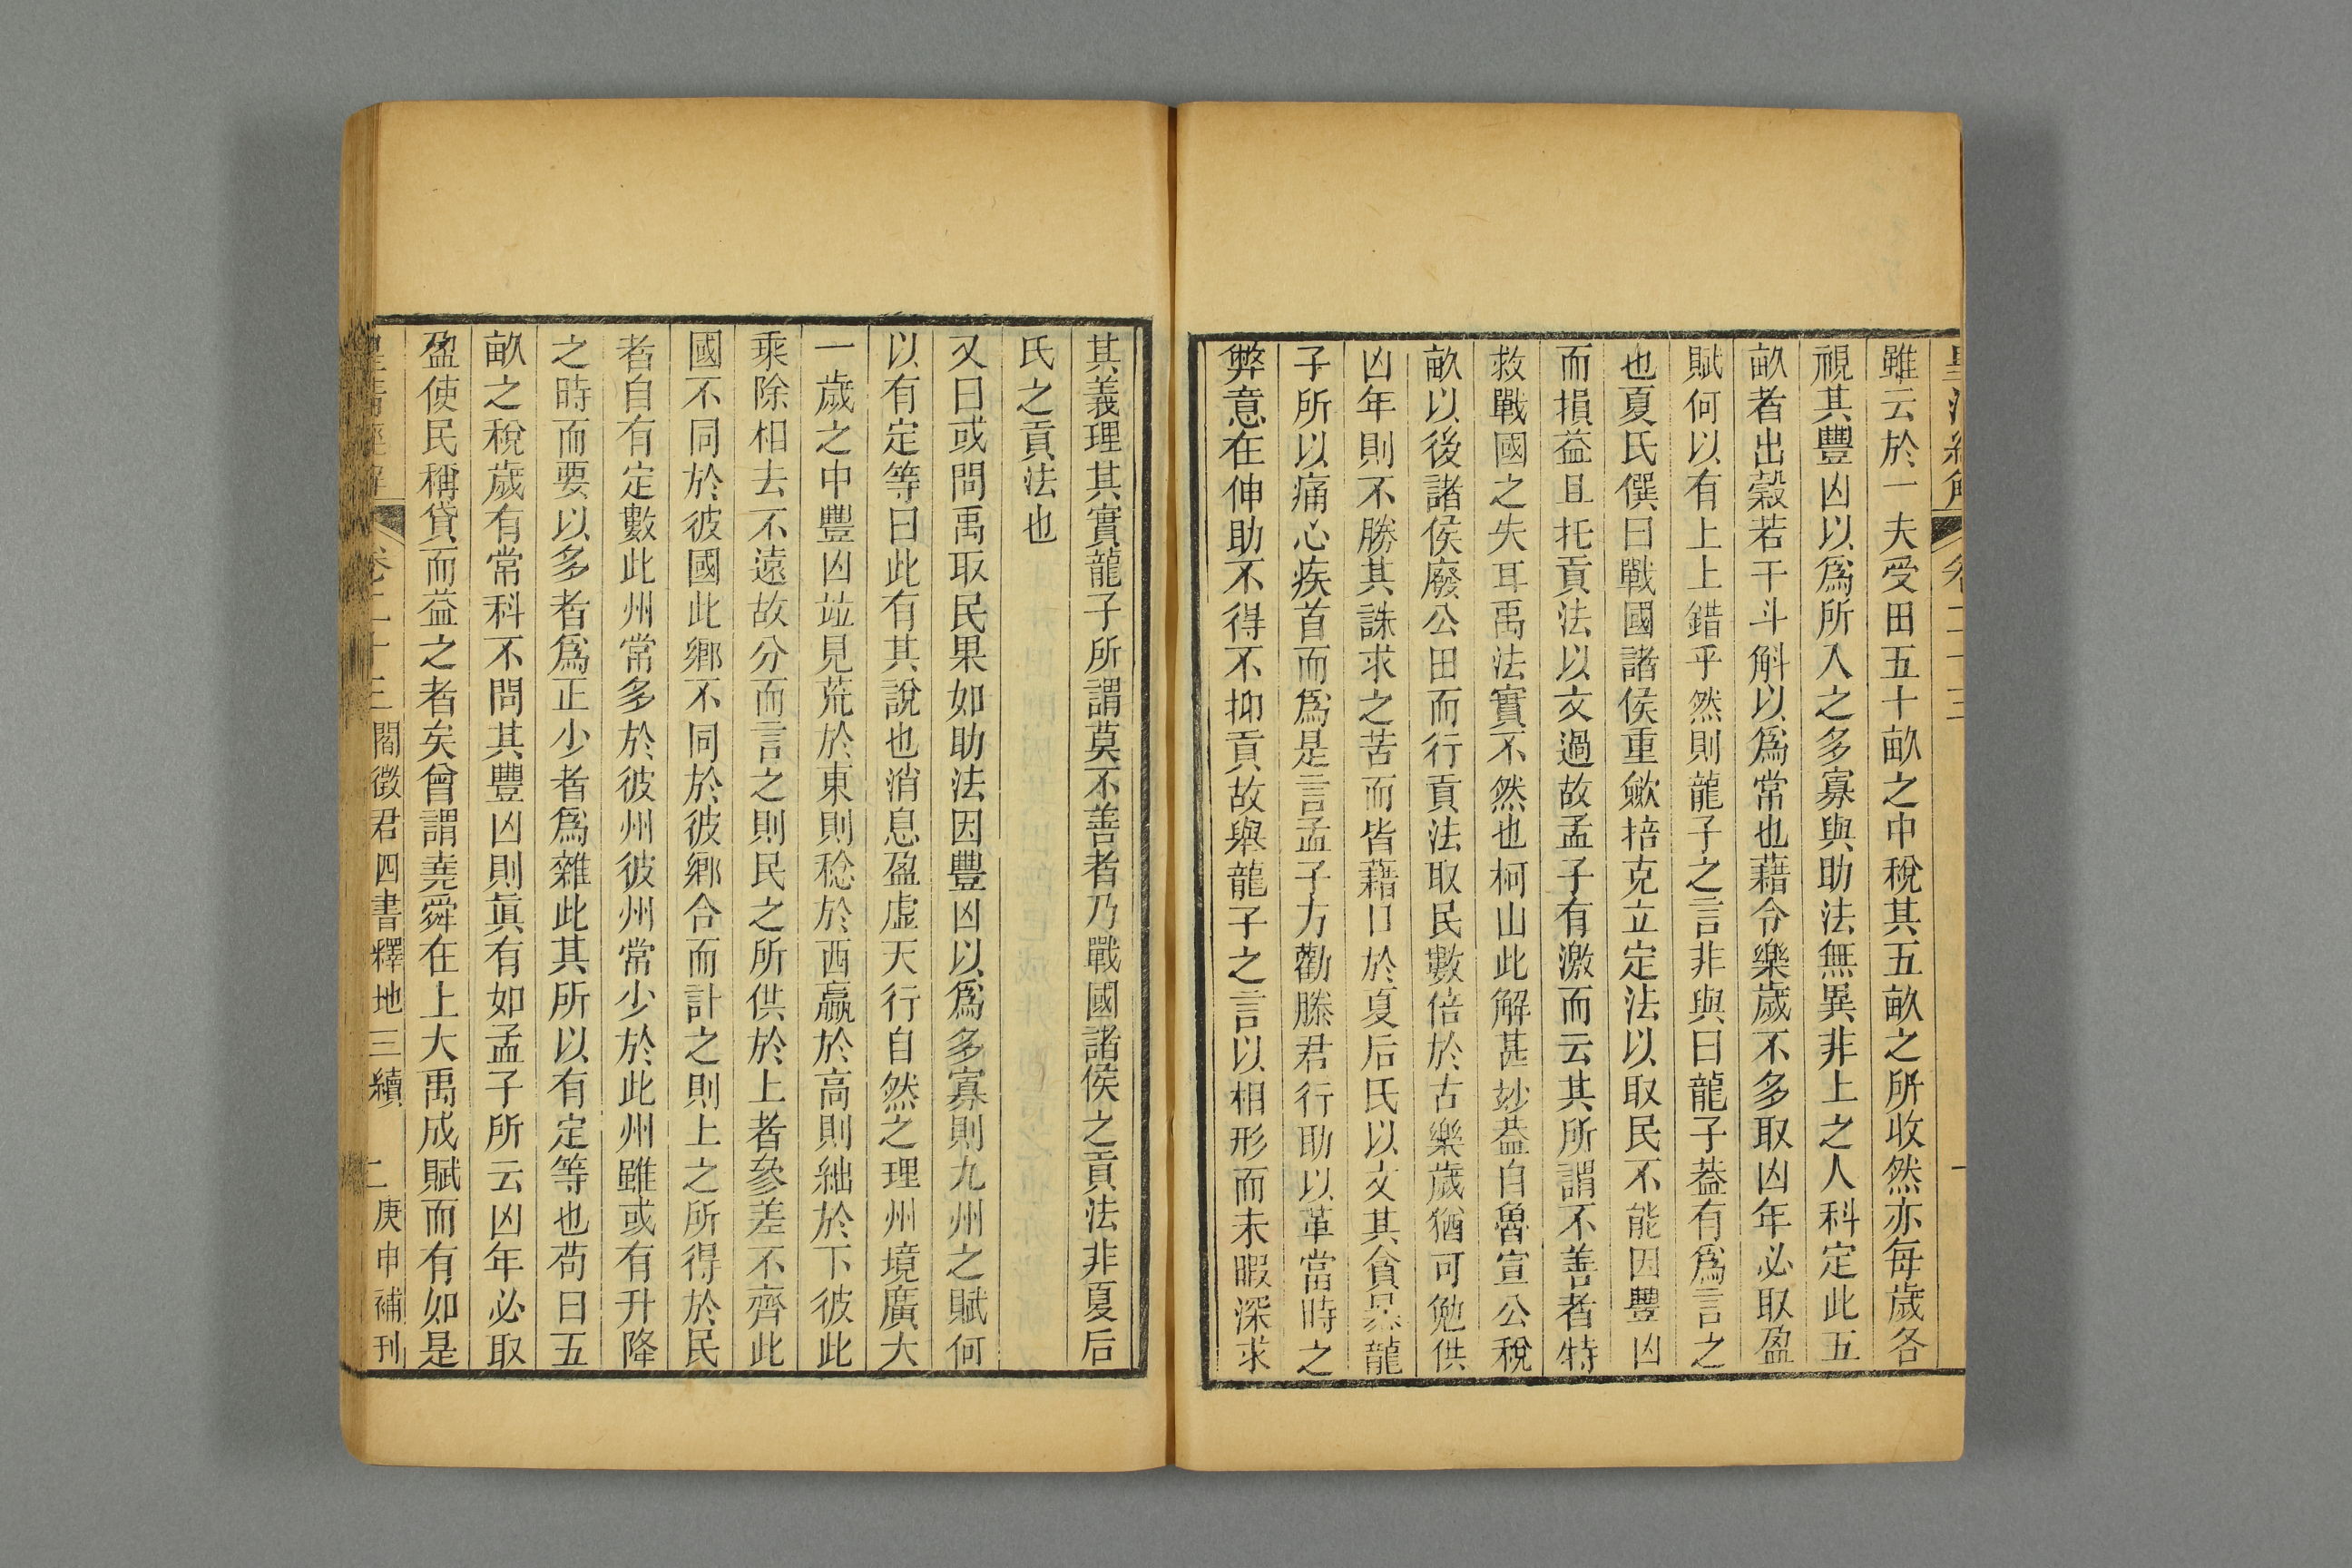 雖云於一夫受田五十畝之中稅其五畝之所收然亦每歲各
視其豐凶以爲所入之多寡與助法無異非上之人科定此五
畝者出穀若干斗斛以爲常也藉令樂歲不多取凶年必取盈
賦何以有上上錯乎然則龍子之言非與曰龍子葢有爲言之
也夏氏僎曰戰國諸侯重斂掊克立定法以取民不能因豐凶
而損益且托貢法以文過故孟子有激而云其所謂不善者特
救戰國之失耳禹法實不然也柯山此解甚妙葢自魯宣公稅
畝以後諸侯廢公田而行貢法取民數倍於古樂歲猶可勉供
凶年則不勝其誅求之苦而皆藉口於夏后氏以文其貪暴龍
子所以痛心疾首而爲是言孟子方勸滕君行助以革當時之
弊意在伸助不得不抑貢故與龍子之言以相形而未暇深求
其義理其實龍子所謂莫不善者乃戰國諸侯之貢法非夏后
氏之貢法也
又曰或問禹取民果如助法因豐凶以爲多寡則九州之賦何
以有定等曰此有其說也消息盈虛天行自然之理州境廣大
一歲之中豐凶竝見荒於東則稔於西贏於高則絀於下彼此
乘除相去不遠故分而言之則民之所供於上者參差不齊此
國不同於彼國此鄉不同於彼鄉合而計之則上之所得於民
者自有定數此州常多於彼州彼州常少於此州雖或有升降
之時而要以多者爲正少者爲雜此其所以有定等也苟曰五
畝之稅歲有常科不問其豐凶則眞有如孟子所云凶年必取
盈使民稱貸而益之者矣曾謂堯舜在上大禹成賦而有如是
皇淸經解 卷二十三 閻徵君四書釋地三續 二 庚申補刊